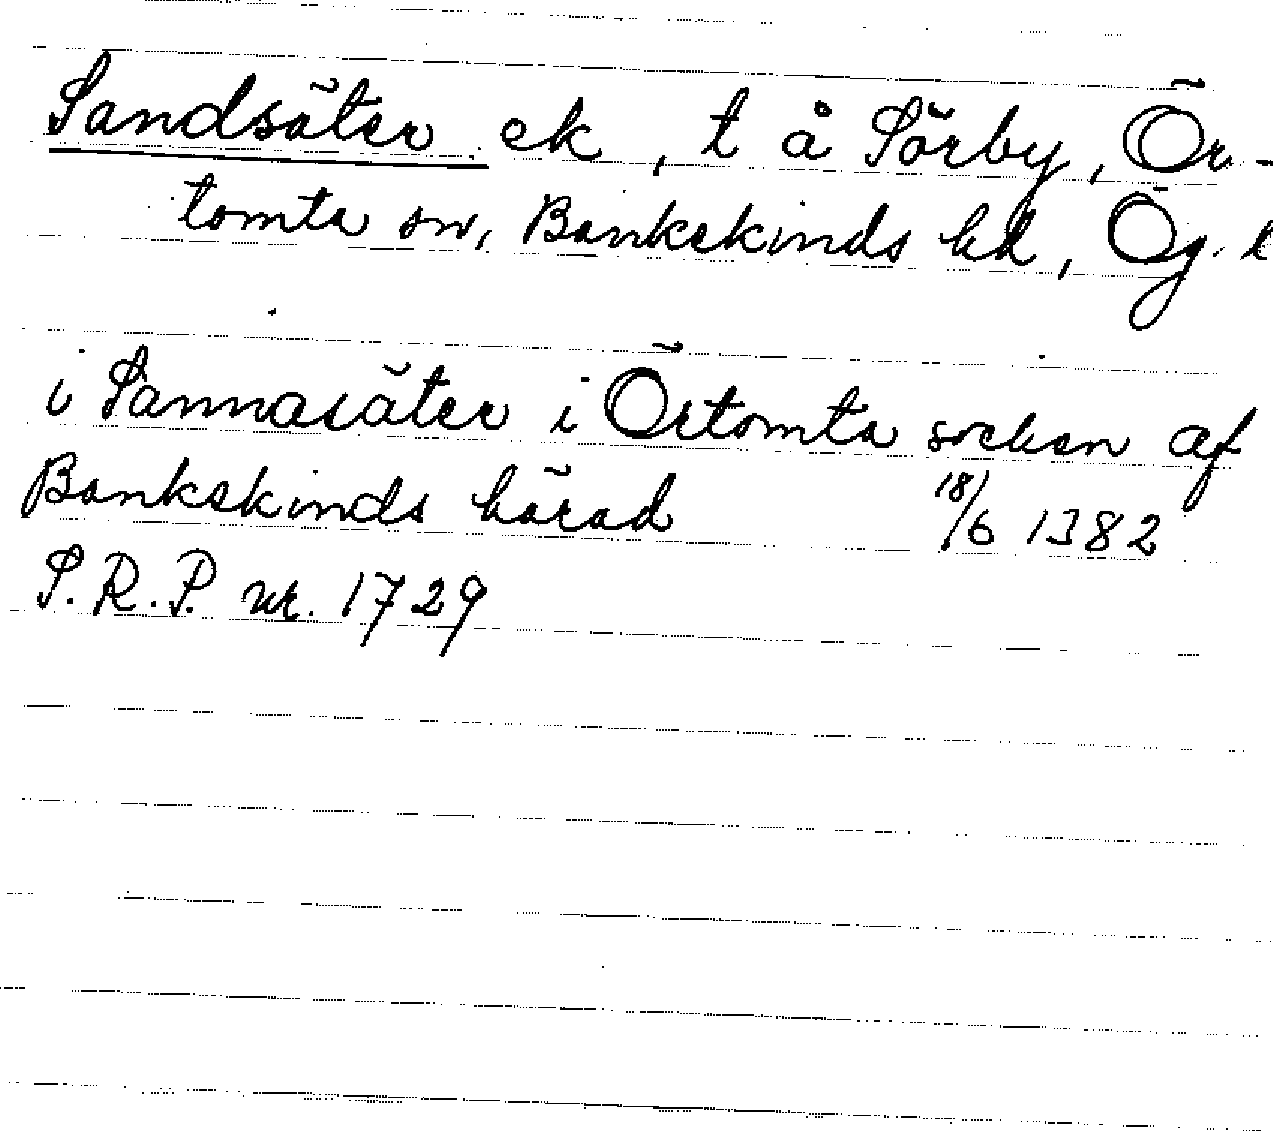 Sandsäter ek, t å Sörby, Ör-
tomta sn, Bankekinds hd, Ög. l
i Sannasäter i Örtomta socken af
Bankekinds härad 18/6 1382
S.R.P. nr. 1729